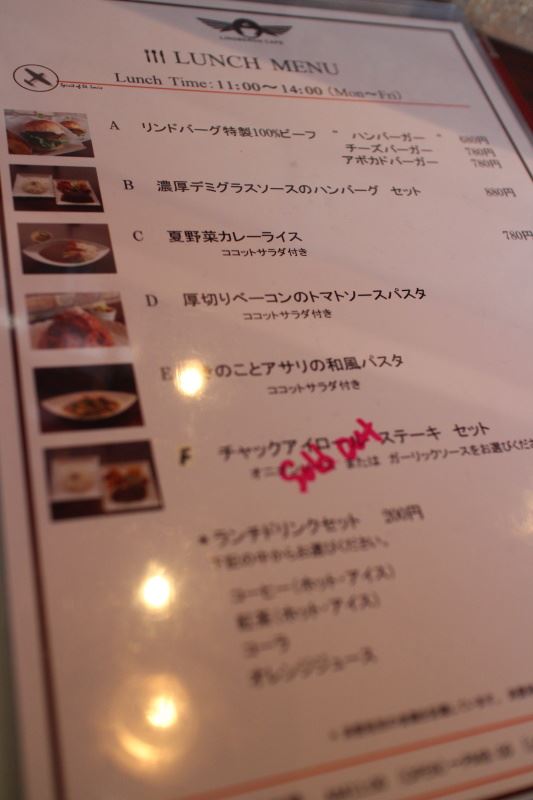 LINDBERGH CAFE
LUNCH MENU
Lunch Time: 11:00～14:00 (Mon～Fri)
Spirit of St. Louis
A リンドバーグ特製100%ビーフ " ハンバーガー " 680円
チーズバーガー 780円
アボカドバーガー 780円
B 濃厚デミグラスソースのハンバーグ セット 880円
C 夏野菜カレーライス 780円
ココットサラダ付き
D 厚切りベーコンのトマトソースパスタ
ココットサラダ付き
E きのことアサリの和風パスタ
ココットサラダ付き
F チャックアイロール ステーキ セット
Sold Out
または ガーリックソースをお選びくだ
＊ランチドリンクセット 200円
下記の中からお選びください。
コーヒー(ホット・アイス)
紅茶(ホット・アイス)
コーラ
オレンジジュース